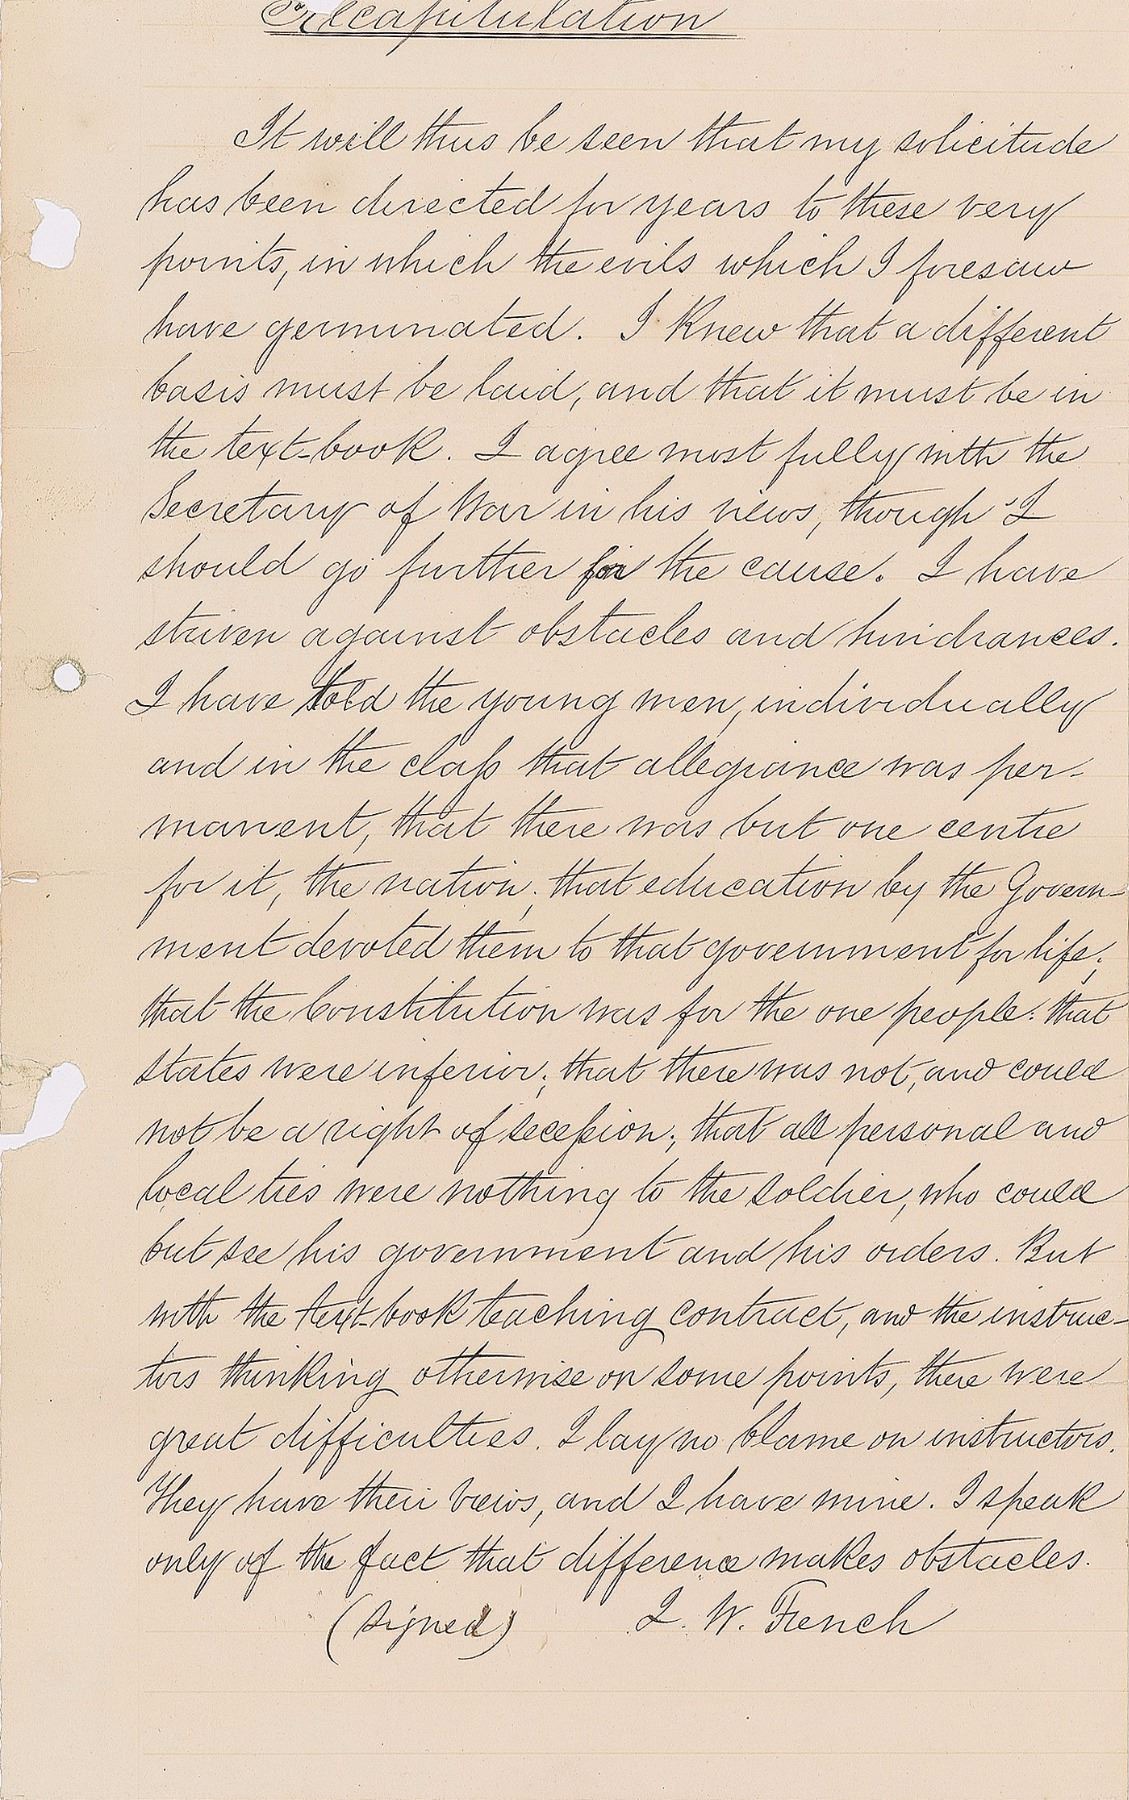 Recapitulation
It will thus be seen that my solicitude
has been directed for years to these very
points, in which the evils which I foresaw
have germinated. I knew that a different
basis must be laid, and that it must be in
the text-book. I agree most fully with the
Secretary of War in his views, though I
should go further for the cause. I have
striven against obstacles and hindrances.
I have told the young men, individually
and in the class that allegiance was per-
manent, that there was but one centre
for it, the nation; that education by the Govern-
ment devoted them to that government for life;
that the Constitution was for the one people: that
states were inferior; that there was not, and could
not be a right of secession; that all personal and
local ties were nothing to the soldier, who could
but see his government and his orders. But
with the text-book teaching contract, and the instruc-
tors thinking otherwise on some points, there were
great difficulties. I lay no blame on instructors.
They have their views, and I have mine. I speak
only of the fact that difference makes obstacles.
(signed) J. W. French